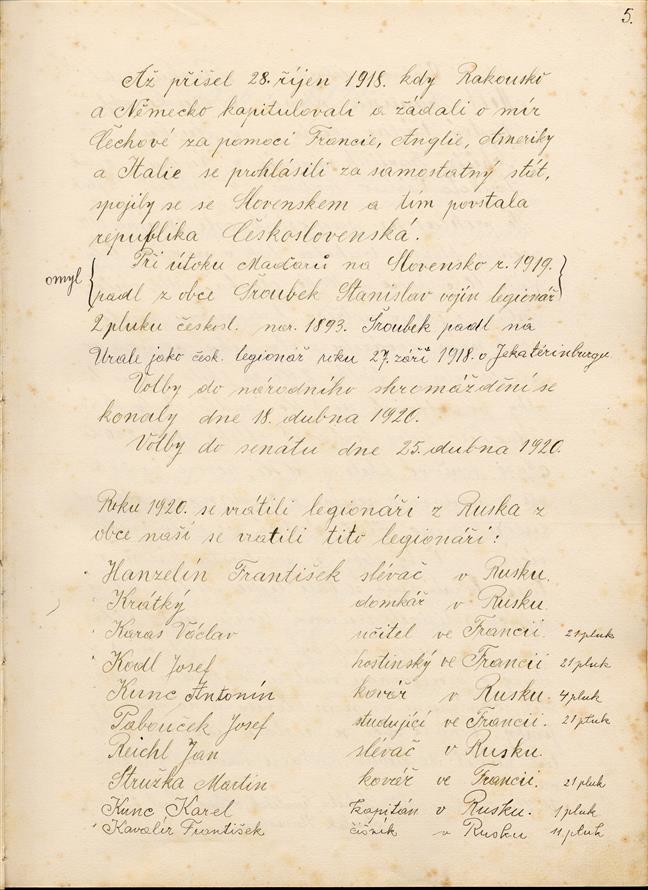 5.
Až přišel 28. říjen 1918. kdy Rakousko
a Německo kapitulovali a žádali o mír
Čechové za pomoci Francie, Anglie, Ameriky
a Italie se prohlásili za samostatný stát,
spojily se se Slovenskem a tím povstala
republika Československá.
Při útoku Maďarů na Slovensko r. 1919.
omyl padl z obce Šroubek Stanislav vojín legionář
2 pluku českosl. nar. 1893. Šroubek padl na
Urale jako česk. legionář roku 27. září 1918. v Jekaterinburgu
Volby do národního shromáždění se
konaly dne 18. dubna 1920.
Volby do senátu dne 25. dubna 1920.
Roku 1920. se vrátili legionáři z Ruska z
obce naší se vrátili tito legionáři:
Hanzelín František slévač v Rusku.
Krátký domkář v Rusku.
Karas Václav učitel ve Francii. 21 pluk
Kodl Josef hostinský ve Francii 21 pluk
Kunc Antonín kovář v Rusku. 4 pluk
Pabouček Josef studující ve Francii. 21 pluk
Reichl Jan slévač v Rusku.
Stružka Martin kovář ve Francii. 21 pluk
Kunc Karel kapitán v Rusku. 1 pluk
Kavalír František číšník v Rusku 11 pluk